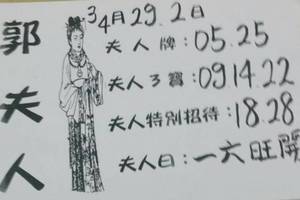 郭夫人
3/4月29.2日
夫人牌:05.25
夫人3寶:09.14.22
夫人特別招待:18.28
夫人曰:一六旺開